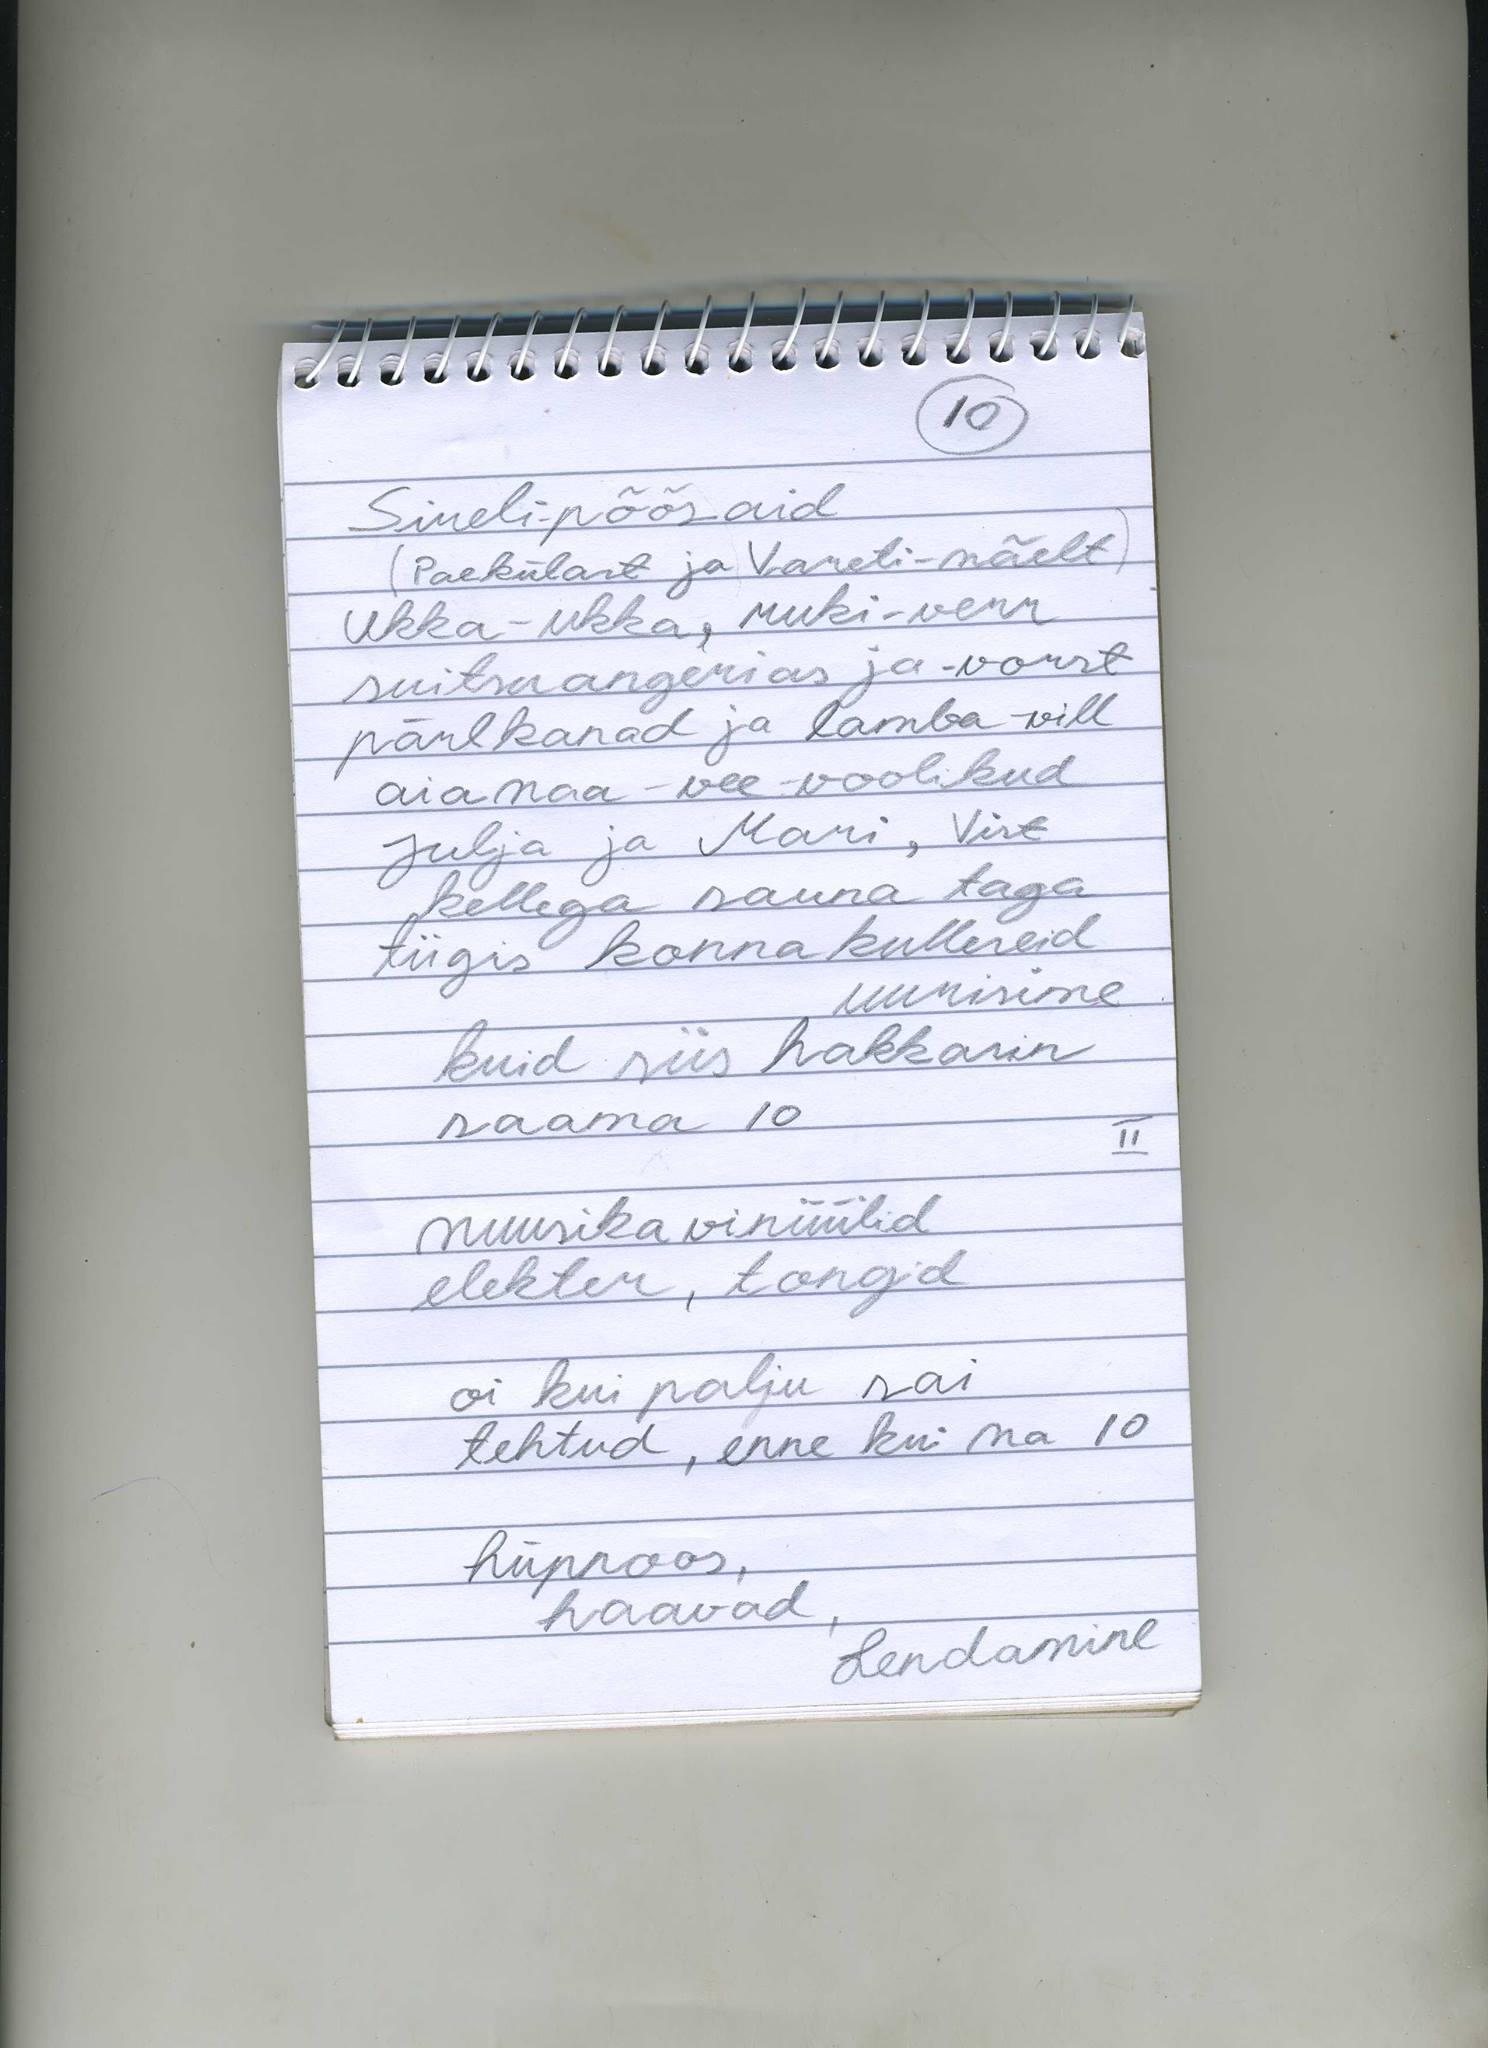 10
Sireli-põõsaid
(Paekülast ja Vareti-mäelt)
Ukka-ukka, muki-verr
suitsuangerias ja -vorst
pärlkanad ja lamba-vill
aiamaa-vee-voolikud
Julja ja Mari, Virt
kellega sauna taga
tiigis konnakullereid
uurisime
kuid siis hakkasin
saama 10
II
muusika vinüülid
elekter, tangid
oi kui palju sai
tehtud, enne kui ma 10
hüpnoos,
haavad,
Lendamine